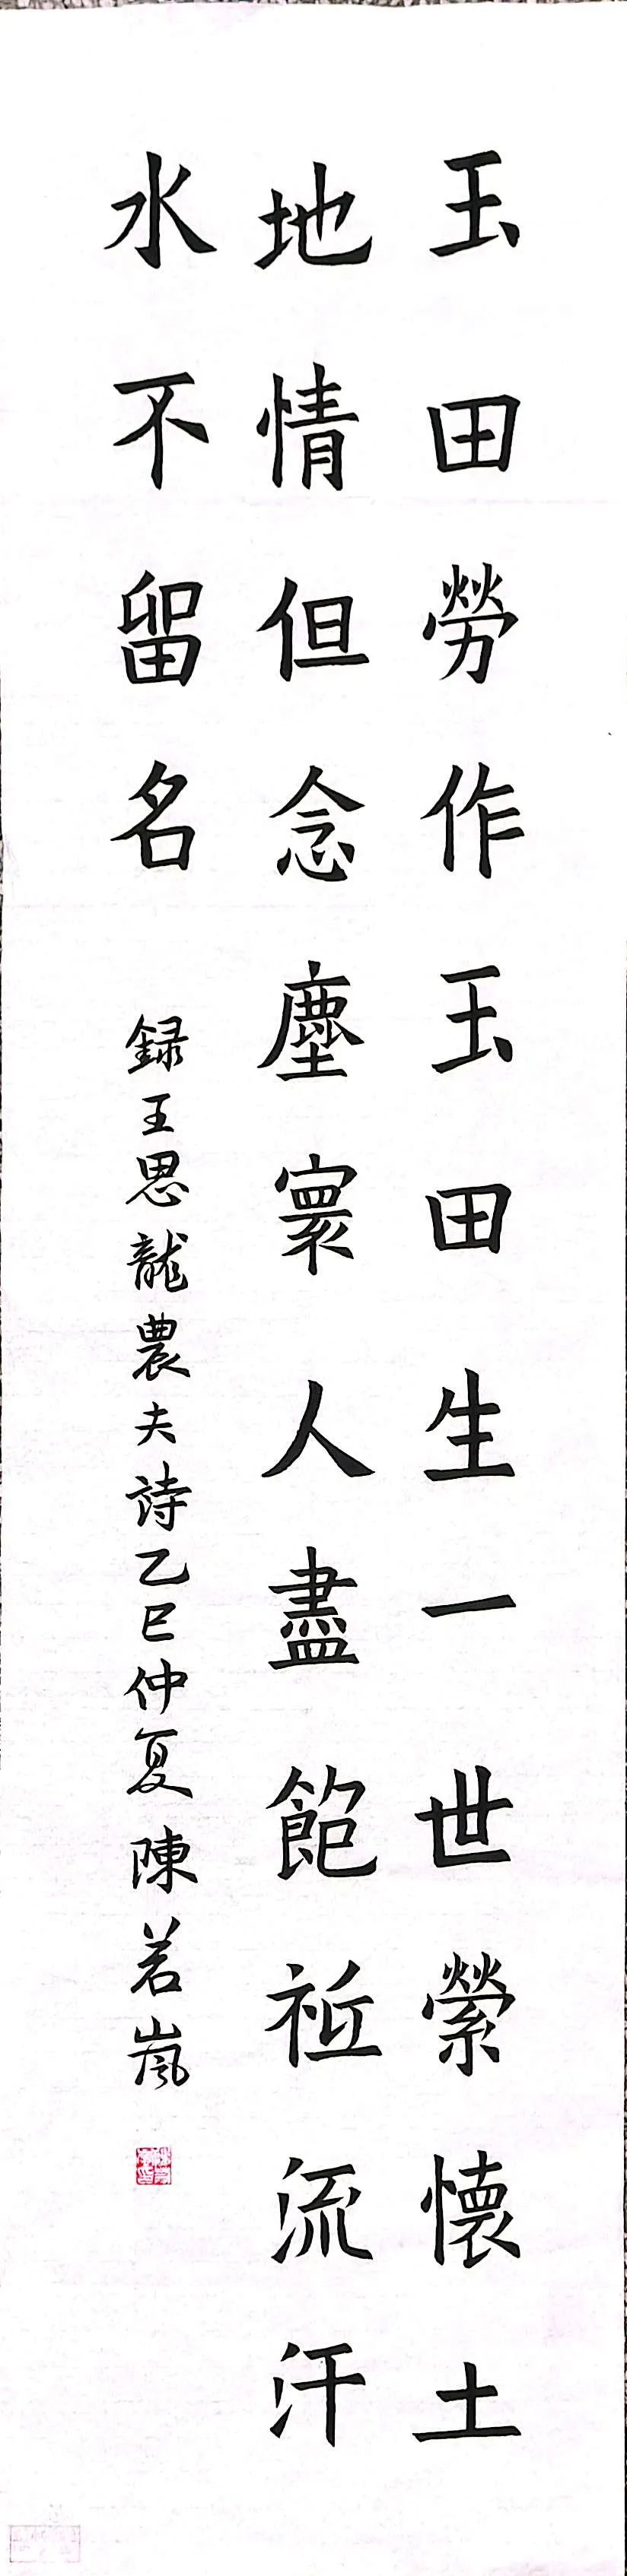 玉田勞作玉田生一世縈懷土
地情但念塵寰人盡飽祗流汗
水不留名
録王思龍農夫詩乙巳仲夏陳若嵐